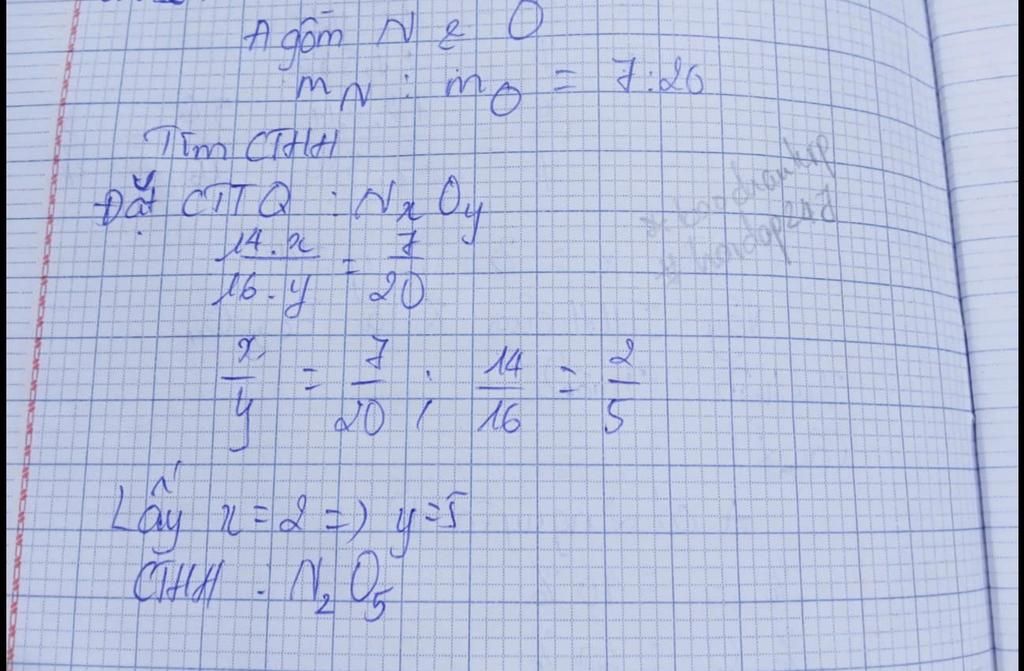 A gồm N & O
mN : mO = 7:20
Tìm CTHH
Đặt CTTQ : NxOy
14.x / 16.y = 7 / 20
x / y = 7 / 20 : 14 / 16 = 2 / 5
Lấy x = 2 => y = 5
CTHH : N2O5